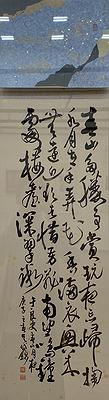 春山多勝事賞玩夜忘歸掬
水月在手弄花香滿衣興來
無遠近欲去惜芳菲南望鳴鐘
處樓臺深翠微
于良史春山夜月